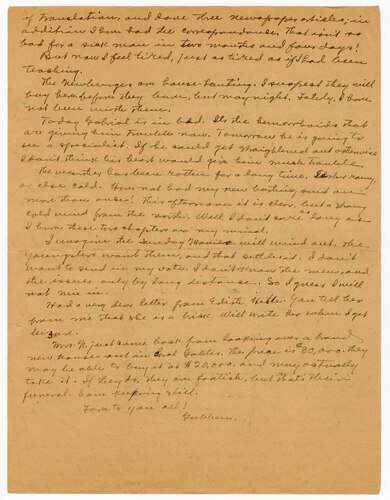 of translation, and done three newspaper articles, in
addition I have had the correspondence. That isn't so
bad for a sick man in two months and four days!
But now I feel tired, just as tired as if I had been
teaching.
The Newbergers are house-hunting. I suspect they will
buy here before they leave, but may night. Lately, I have
not been with them.
Today Gabriel is in bed. Its the hemorrhoids that
are giving him trouble now. Tomorrow he is going to
see a specialist. If he could get straightened out otherwise
I don't think his heart would give him much trouble.
The weather has been rotten for a long time. Either rainy,
or else cold. Have not had my new bathing suit on
more than once! This afternoon it is clear, but a strong
cold wind from the north. Well I don't care as long as
I have these two chapters on my mind.
I imagine the Sunday will wind out. The
youngsters want them, and that settles it. I don't
want to send in my vote. I don't know the men, and
the issues only by long distance. So I guess I will
not mix in.
Had a very dear letter from Edith. You tell her
from me that she is a brick. Will write her when I get
leisure.
Mrs. N. just came back from looking over a brand
new house out in Coral Gables. The price is $30,000. They
may be able to buy it at $20,000, and may actually
take it. If they do, they are foolish, but that's their
funeral. I am keeping still.
Love to you all!